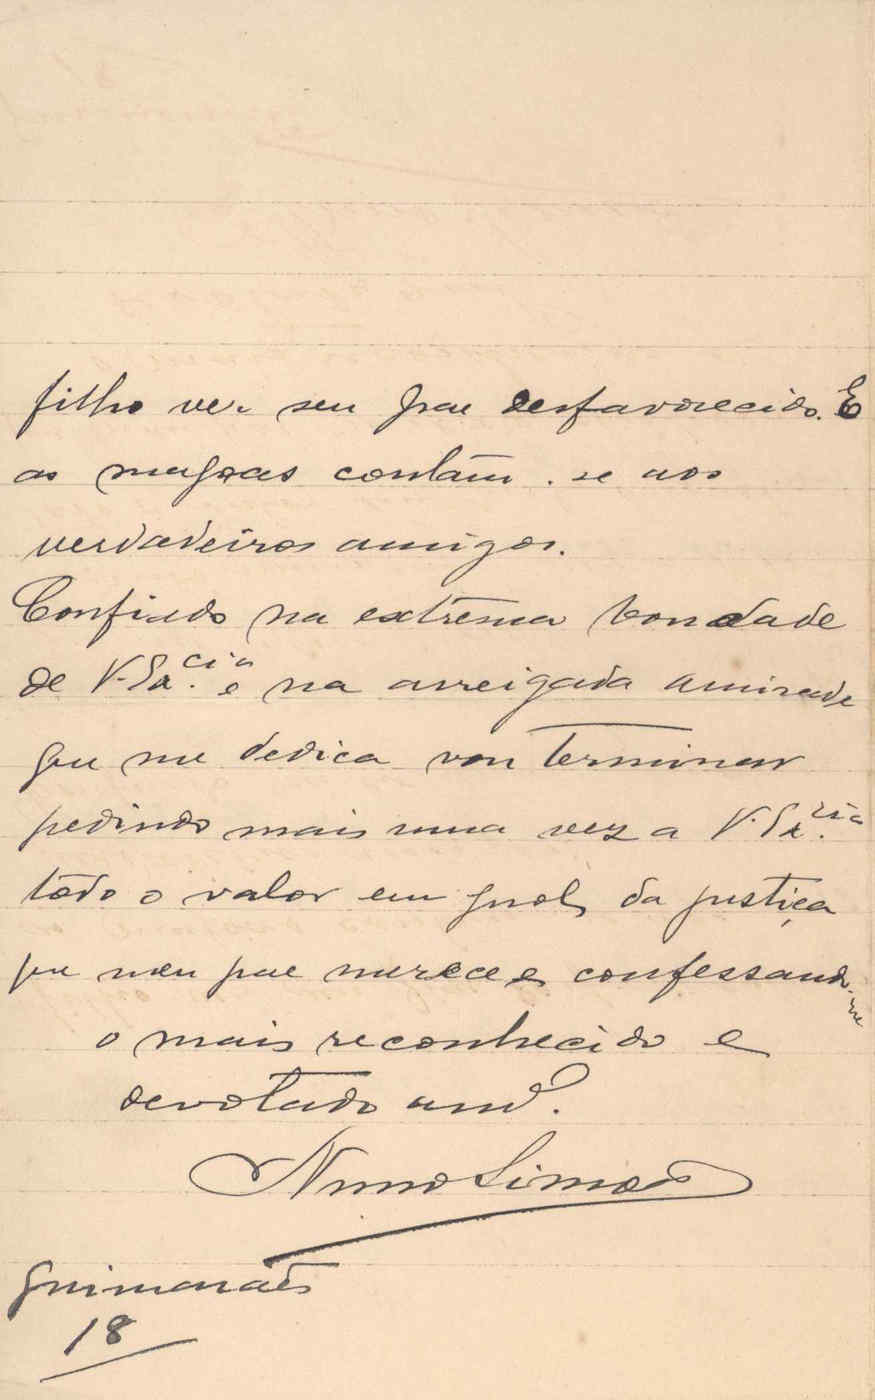 filho ver seu pae desfavorecido. E
as magoas contam-se aos
verdadeiros amigos.
Confiado na extrema bondade
de V. Ex.cia e na arreigada amizade
que me dedica vou terminar
pedindo mais uma vez a V. Ex.cia
todo o valor em prol da justiça
que meu pae merece e confessando-me
o mais reconhecido e
devotado amo.
Nuno Simões
Guimarães
18